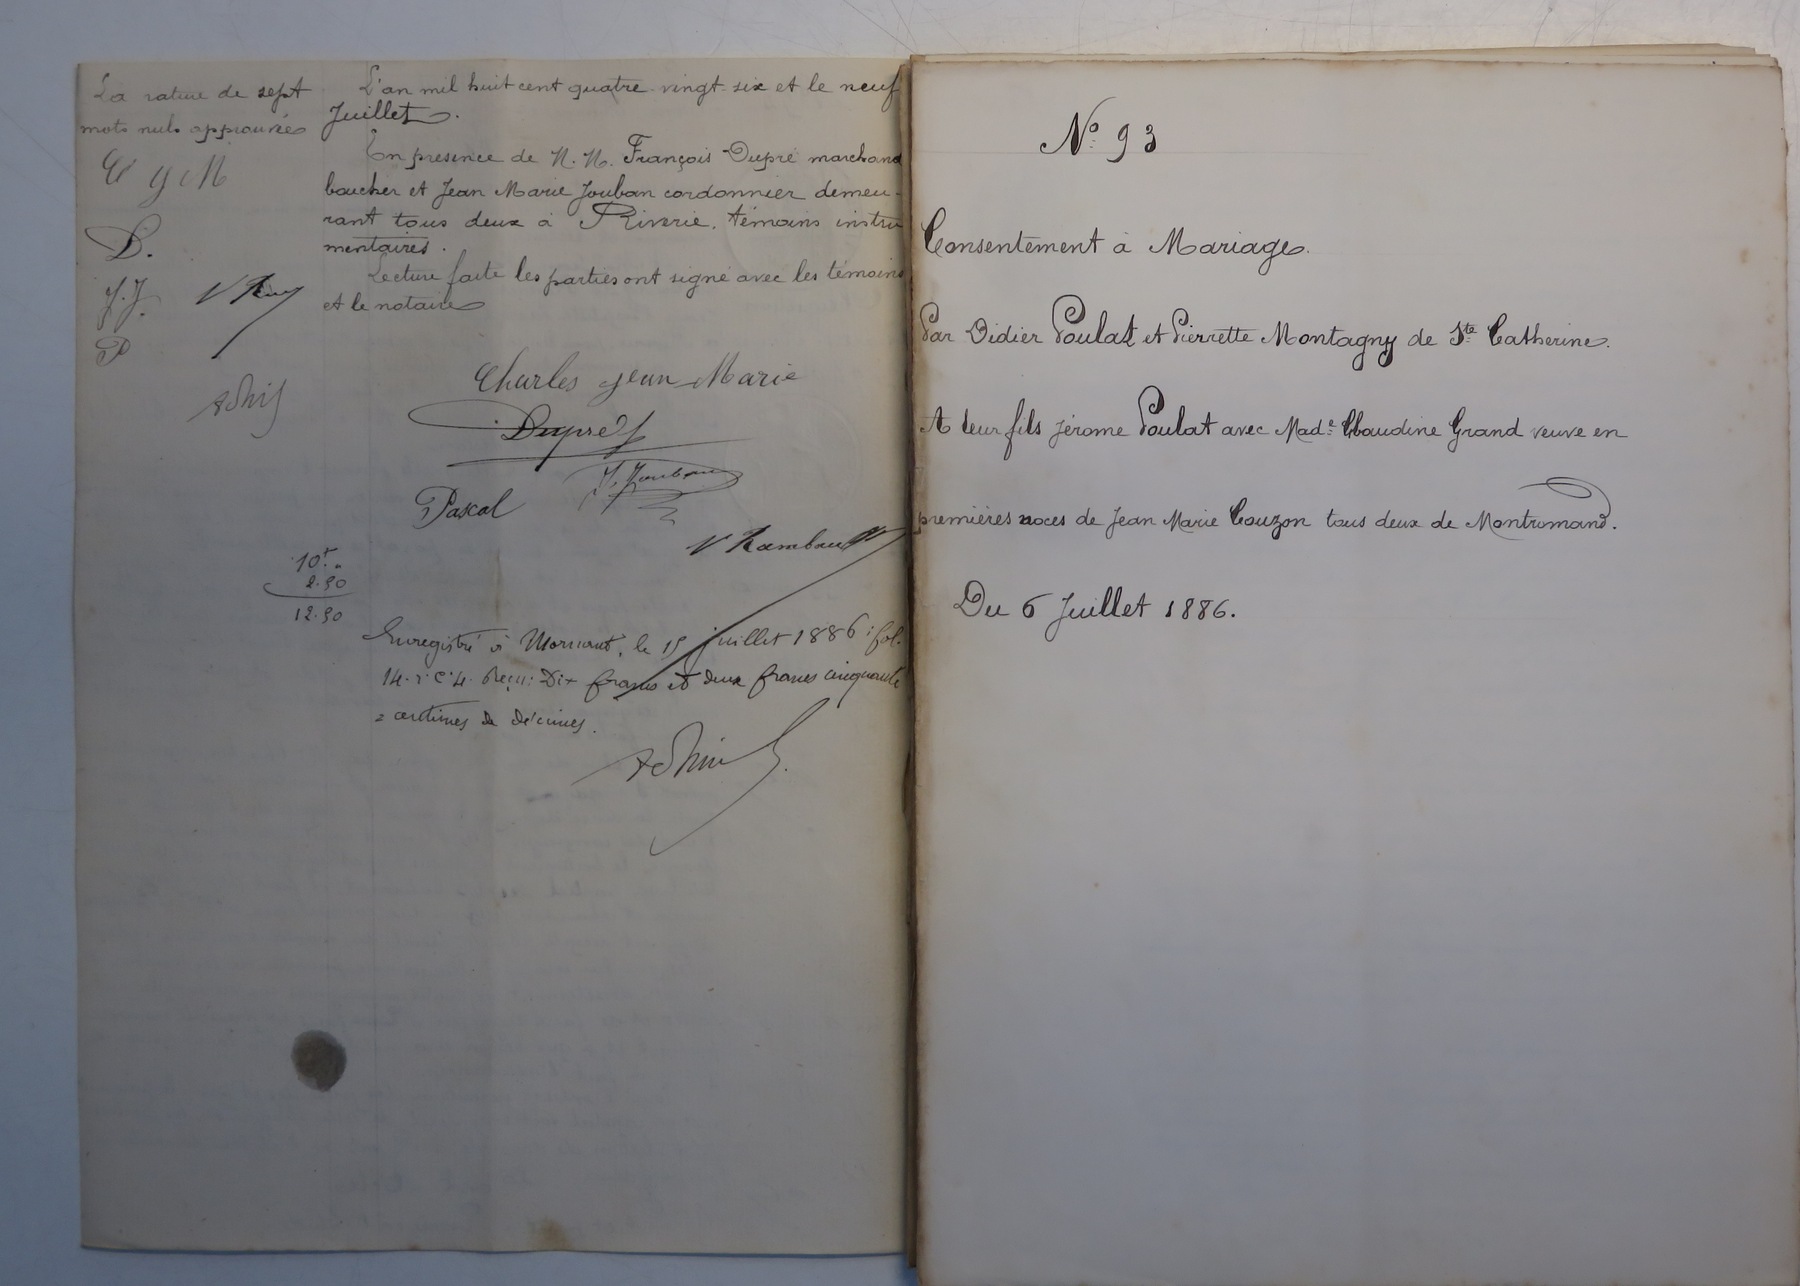 La rature de sept
mots nuls approuvée
C J M
D.
J. J.
P
L'an mil huit cent quatre-vingt-six et le neuf
Juillet.
En présence de M. M. François Dupré marchand
boucher et Jean Marie Jouban cordonnier demeu-
rant tous deux à Riverie, témoins instru
mentaires.
Lecture faite les parties ont signé avec les témoins
et le notaire
Charles Jean-Marie
Dupré
J. Jouban
Pascal
V Rambau
10f. "
2.50
12.50
Enregistré à Mornant, le 15 juillet 1886; fol.
14. r. c. 4. Reçu: Dix francs et deux francs cinquante
centimes de décimes.
N° 93
Consentement à Mariage.
Par Didier Poulat et Pierrette Montagny de Ste Catherine.
A leur fils Jérome Poulat avec Made Claudine Grand veuve en
premières noces de Jean Marie Couzon tous deux de Montromand.
Du 6 Juillet 1886.